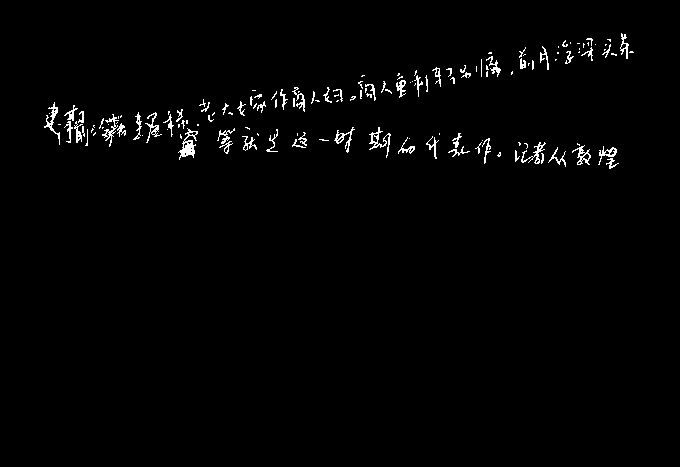 老大嫁作商人妇。商人重利轻别离,前月浮梁买茶
等就是这一时期的代表作。记者从敦煌